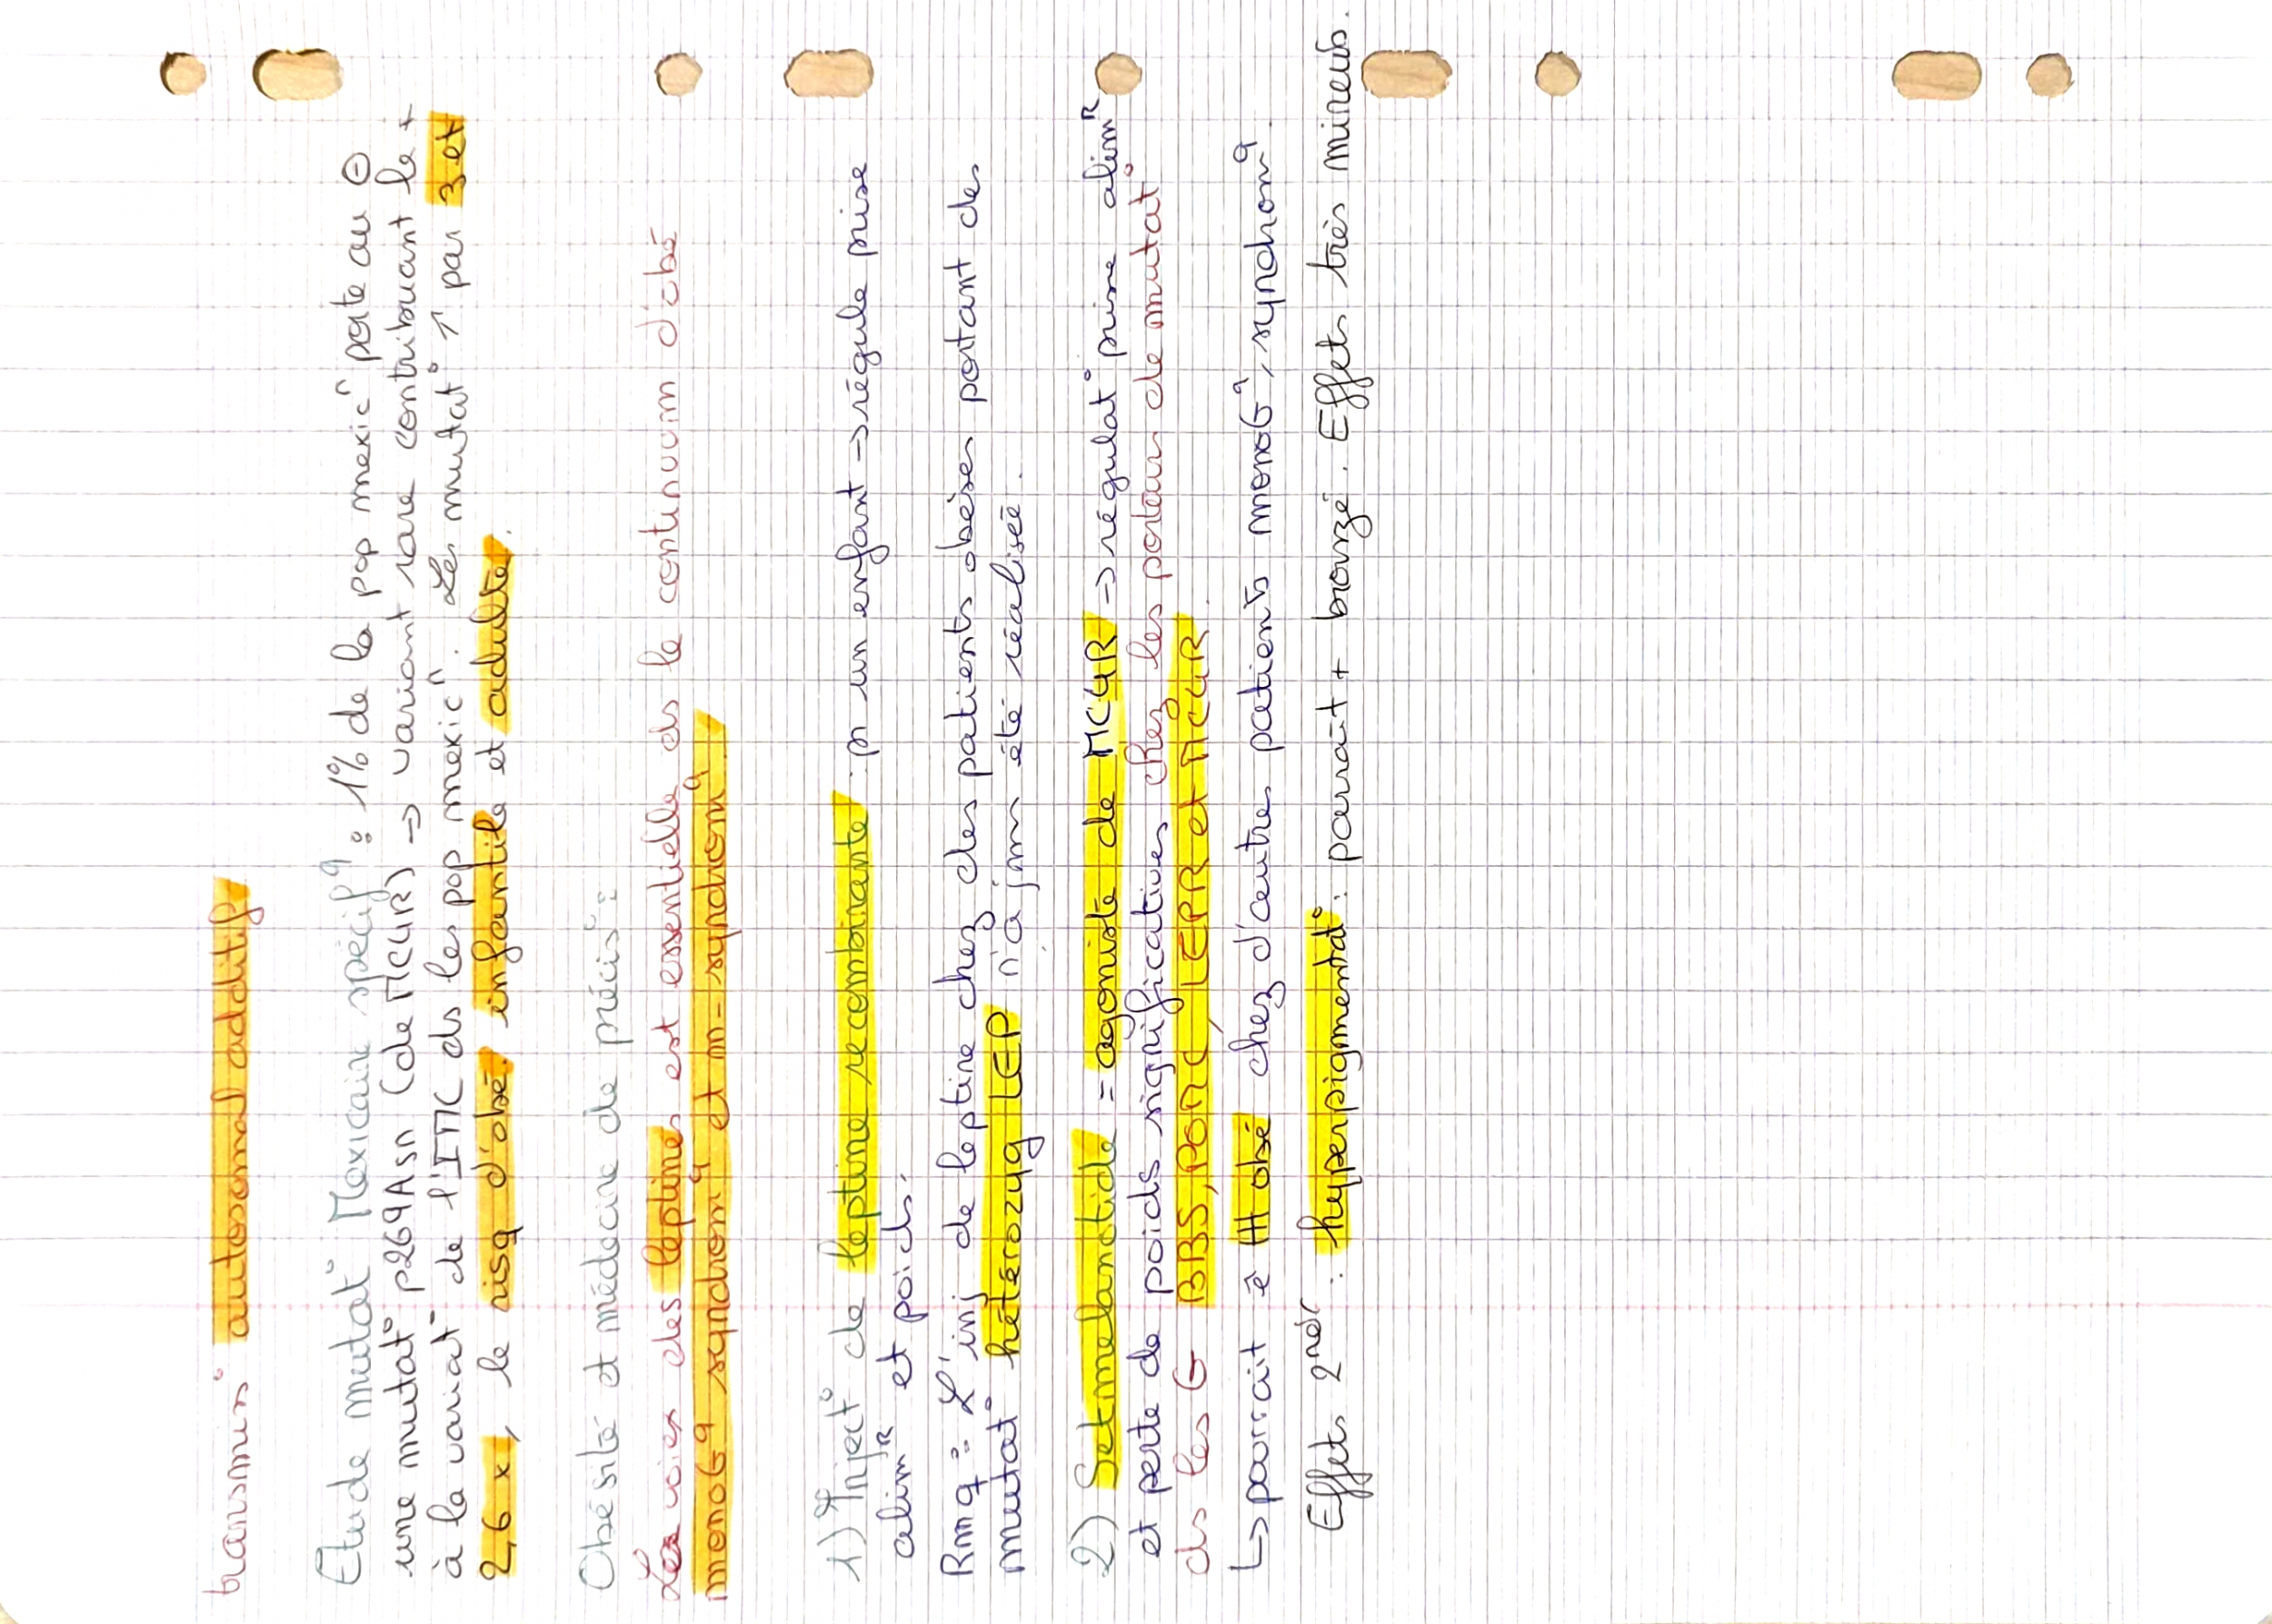 transmis° autosomal additif
Etude mutat° Mexicaine spécifq : 1% de la pop mexicn porte au ⊖
une mutat° p269Asn (de MC4R) → variant rare contribuant le +
à la variat° de l'IMC ds les pop mexicn. Les mutat° ↑ par 3 et
2,6 x, le risq d'obé infantile et adulte.
Obésité et médecine de précis° :
Les voies des leptines est essentielle ds le continuum d'obé
monoGq syndromq et m-syndromq.
1) Inject° de leptine recombinante : pr un enfant → régule prise
alimR et poids.
Rmq : L'inj de leptine chez des patients obèses portant des
mutat° hétérozyg LEP n'a jms été réalisée.
2) Setmelanotide = agoniste de MC4R → régulat° prise alimR
et perte de poids significatives chez les porteurs de mutat°
ds les G BBS, POMC, LEPR et MC4R.
↳ pourrait ê ttt obé chez d'autres patients monoGq, syndromq.
Effets 2ndr : hyperpigmentat° : parrait + bronzé. Effets très mineurs.